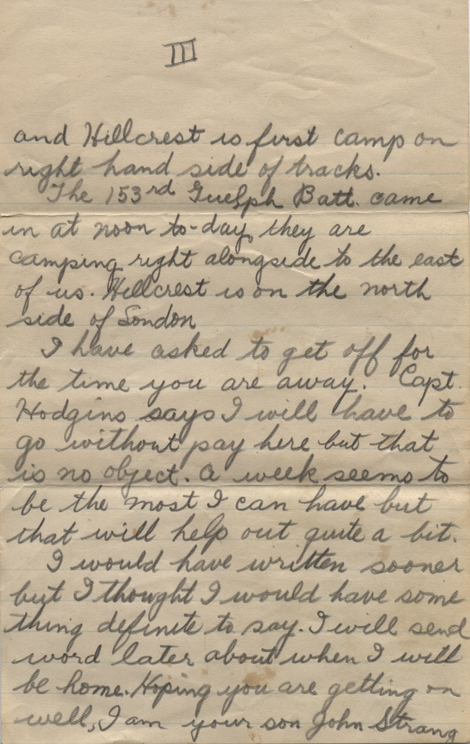 III
and Hillcrest is first camp on
right hand side of tracks.
The 153rd Guelph Batt. came
in at noon to-day, they are
camping right alongside to the east
of us. Hillcrest is on the north
side of London
I have asked to get off for
the time you are away. Capt.
Hodgins says I will have to
go without pay here but that
is no object. A week seems to
be the most I can have but
that will help out quite a bit.
I would have written sooner
but I thought I would have some
thing definite to say. I will send
word later about when I will
be home. Hoping you are getting on
well, I am your son John Strang